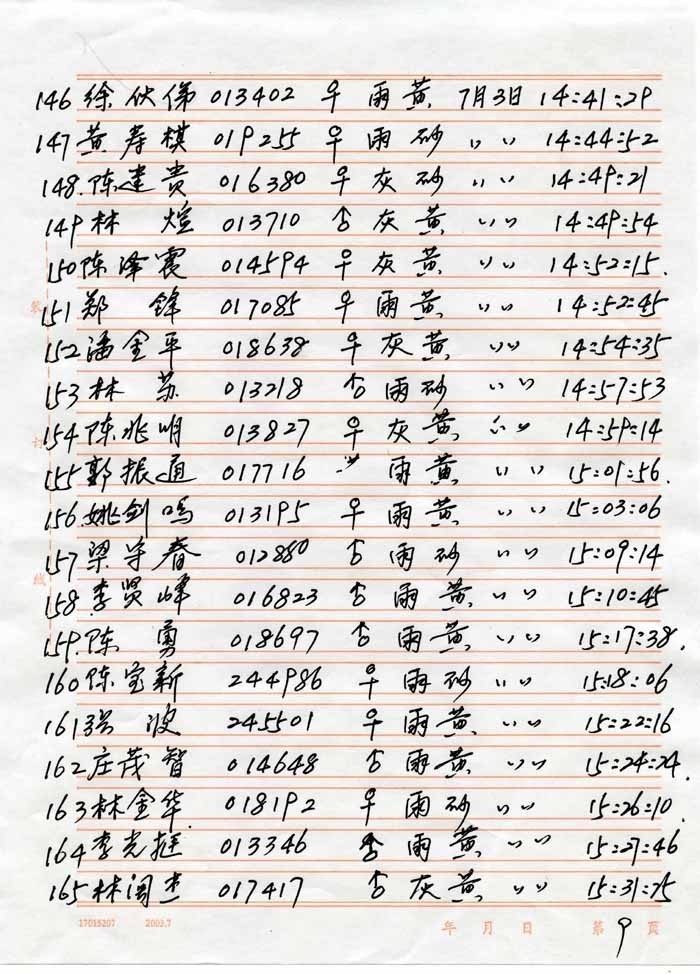 146 徐伙俤 013402 ♀ 雨黄 7月3日 14:41:29
147 黄寿棋 019255 ♀ 雨砂 〃〃 14:44:52
148. 陈建贵 016380 ♀ 灰砂 〃〃 14:49:21
149 林煊 013710 ♂ 灰黄 〃〃 14:49:54
150 陈泽震 014594 ♀ 灰黄 〃〃 14:52:15.
151 郑锋 017085 ♀ 雨黄 〃〃 14:52:45
152 潘金平 018638 ♀ 灰黄 〃〃 14:54:35
153 林苏 013218 ♂ 雨砂 〃〃 14:57:53
154 陈兆明 013827 ♀ 灰黄 〃〃 14:59:14
155 郭振通 017716 〃 雨黄 〃〃 15:01:56.
156 姚剑鸣 013195 ♀ 雨黄 〃〃 15:03:06
157 梁守春 012880 ♂ 雨砂 〃〃 15:09:14
158. 李贤峰 016823 ♂ 雨黄 〃〃 15:10:45
159. 陈勇 018697 ♂ 雨黄 〃〃 15:17:38.
160 陈宝新 244986 ♀ 雨砂 〃〃 15:18:06
161 张波 245501 ♀ 雨黄 〃〃 15:22:16
162 庄茂智 014648 ♂ 雨黄 〃〃 15:24:24.
163 林金华 018192 ♀ 雨砂 〃〃 15:26:10
164 李光挺 013346 ♂ 雨黄 〃〃 15:27:46
165 林闽杰 017417 ♂ 灰黄 〃〃 15:31:25
装
订
线
17015207 2003.7 年 月 日 第 9 页